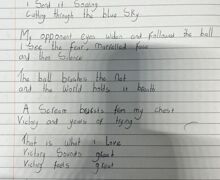 I Send it Soaring
Cutting through the blue Sky.
My opponent eyes widen and followed the ball
I See the fear, face
and then Silence
The ball brushes the Net
and the World holds it breath
A Scream bursts from my chest
Victory and years of trying
That is what I Love
Victory Sounds great
Victory feels great